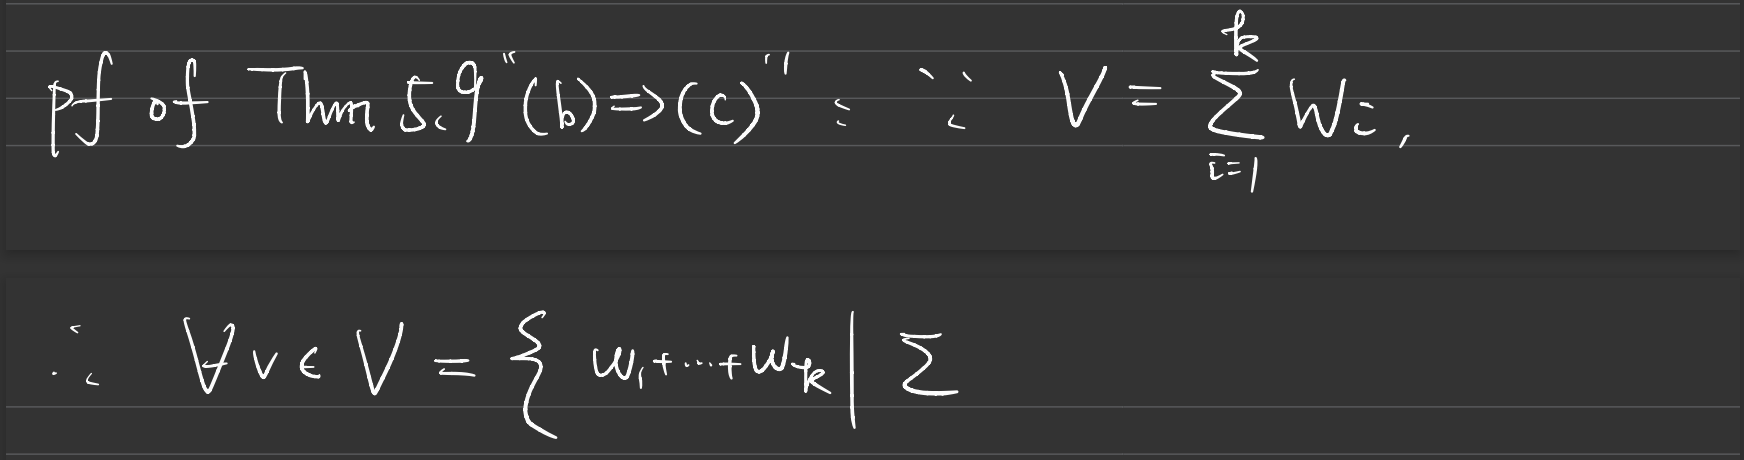 pf of Thm 5.9 "(b)⇒(c)" : ∵ V = \sum_{i=1}^{k} W_i,
∴ ∀ v ∈ V = { w_1 + ⋯ + w_k | Σ